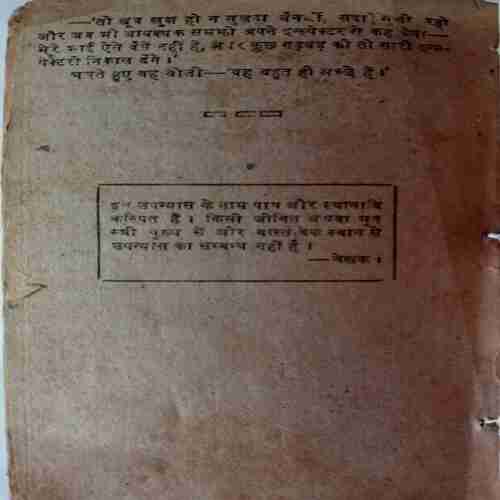 —'तो खूब खुश हो न तुम
और जब भी आवश्यक समझो अपने इन्स्पेक्टर से कह देना—
मेरे भाई ऐसे वैसे नहीं है, और कुछ गड़बड़ की तो सारी
निकाल देंगे ।'
हुए वह बोली—'वह बहुत ही अच्छे हैं ।'
इस उपन्यास के नाम पात्र और स्थानादि
कल्पित हैं । किसी जीवित अथवा मृत
स्त्री पुरुष से और वास्तविक स्थान से
उपन्यास का सम्बन्ध नहीं है ।
—लेखक ।